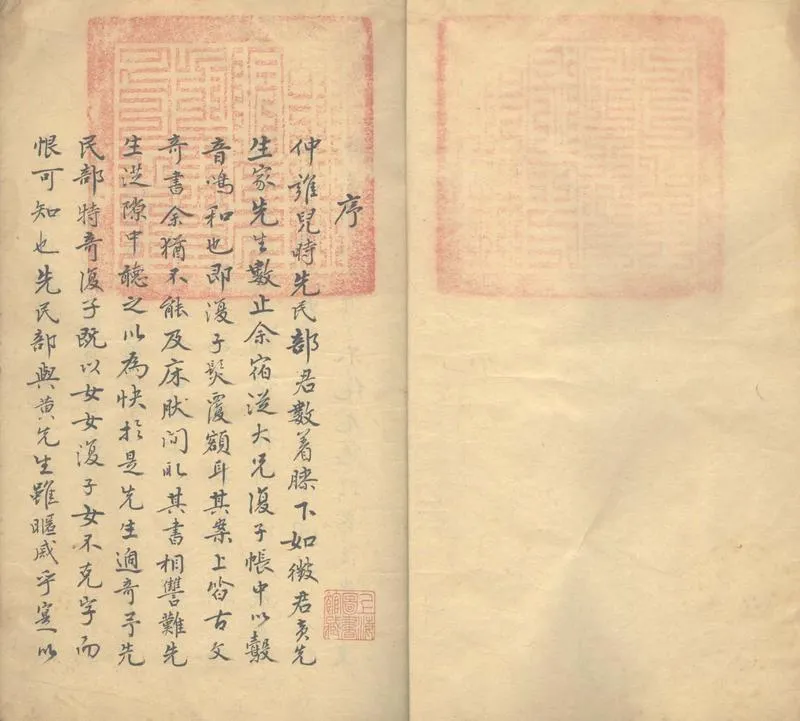 序
仲誰兒時先民部君數着膝下如徵君黃先
生家先生數止余宿從大兄復子帳中以聲
音鳴和也即復子髮覆額耳其案上皆古文
奇書余猶不能及床肰间取其書相讐難先
生從隙中聽之以為快於是先生適奇予先
民部特奇復子既以女女復子女不克字而
恨可知也先民部與黃先生雖暱戚乎寔以
上海圖書館藏